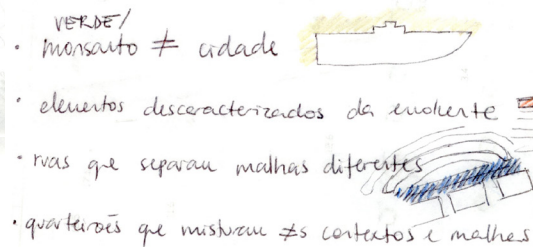 VERDE/
• monsanto ≠ cidade
• elementos descaracterizados da envolvente
• ruas que separam malhas diferentes
• quarteirões que misturam ≠s contextos e malhas